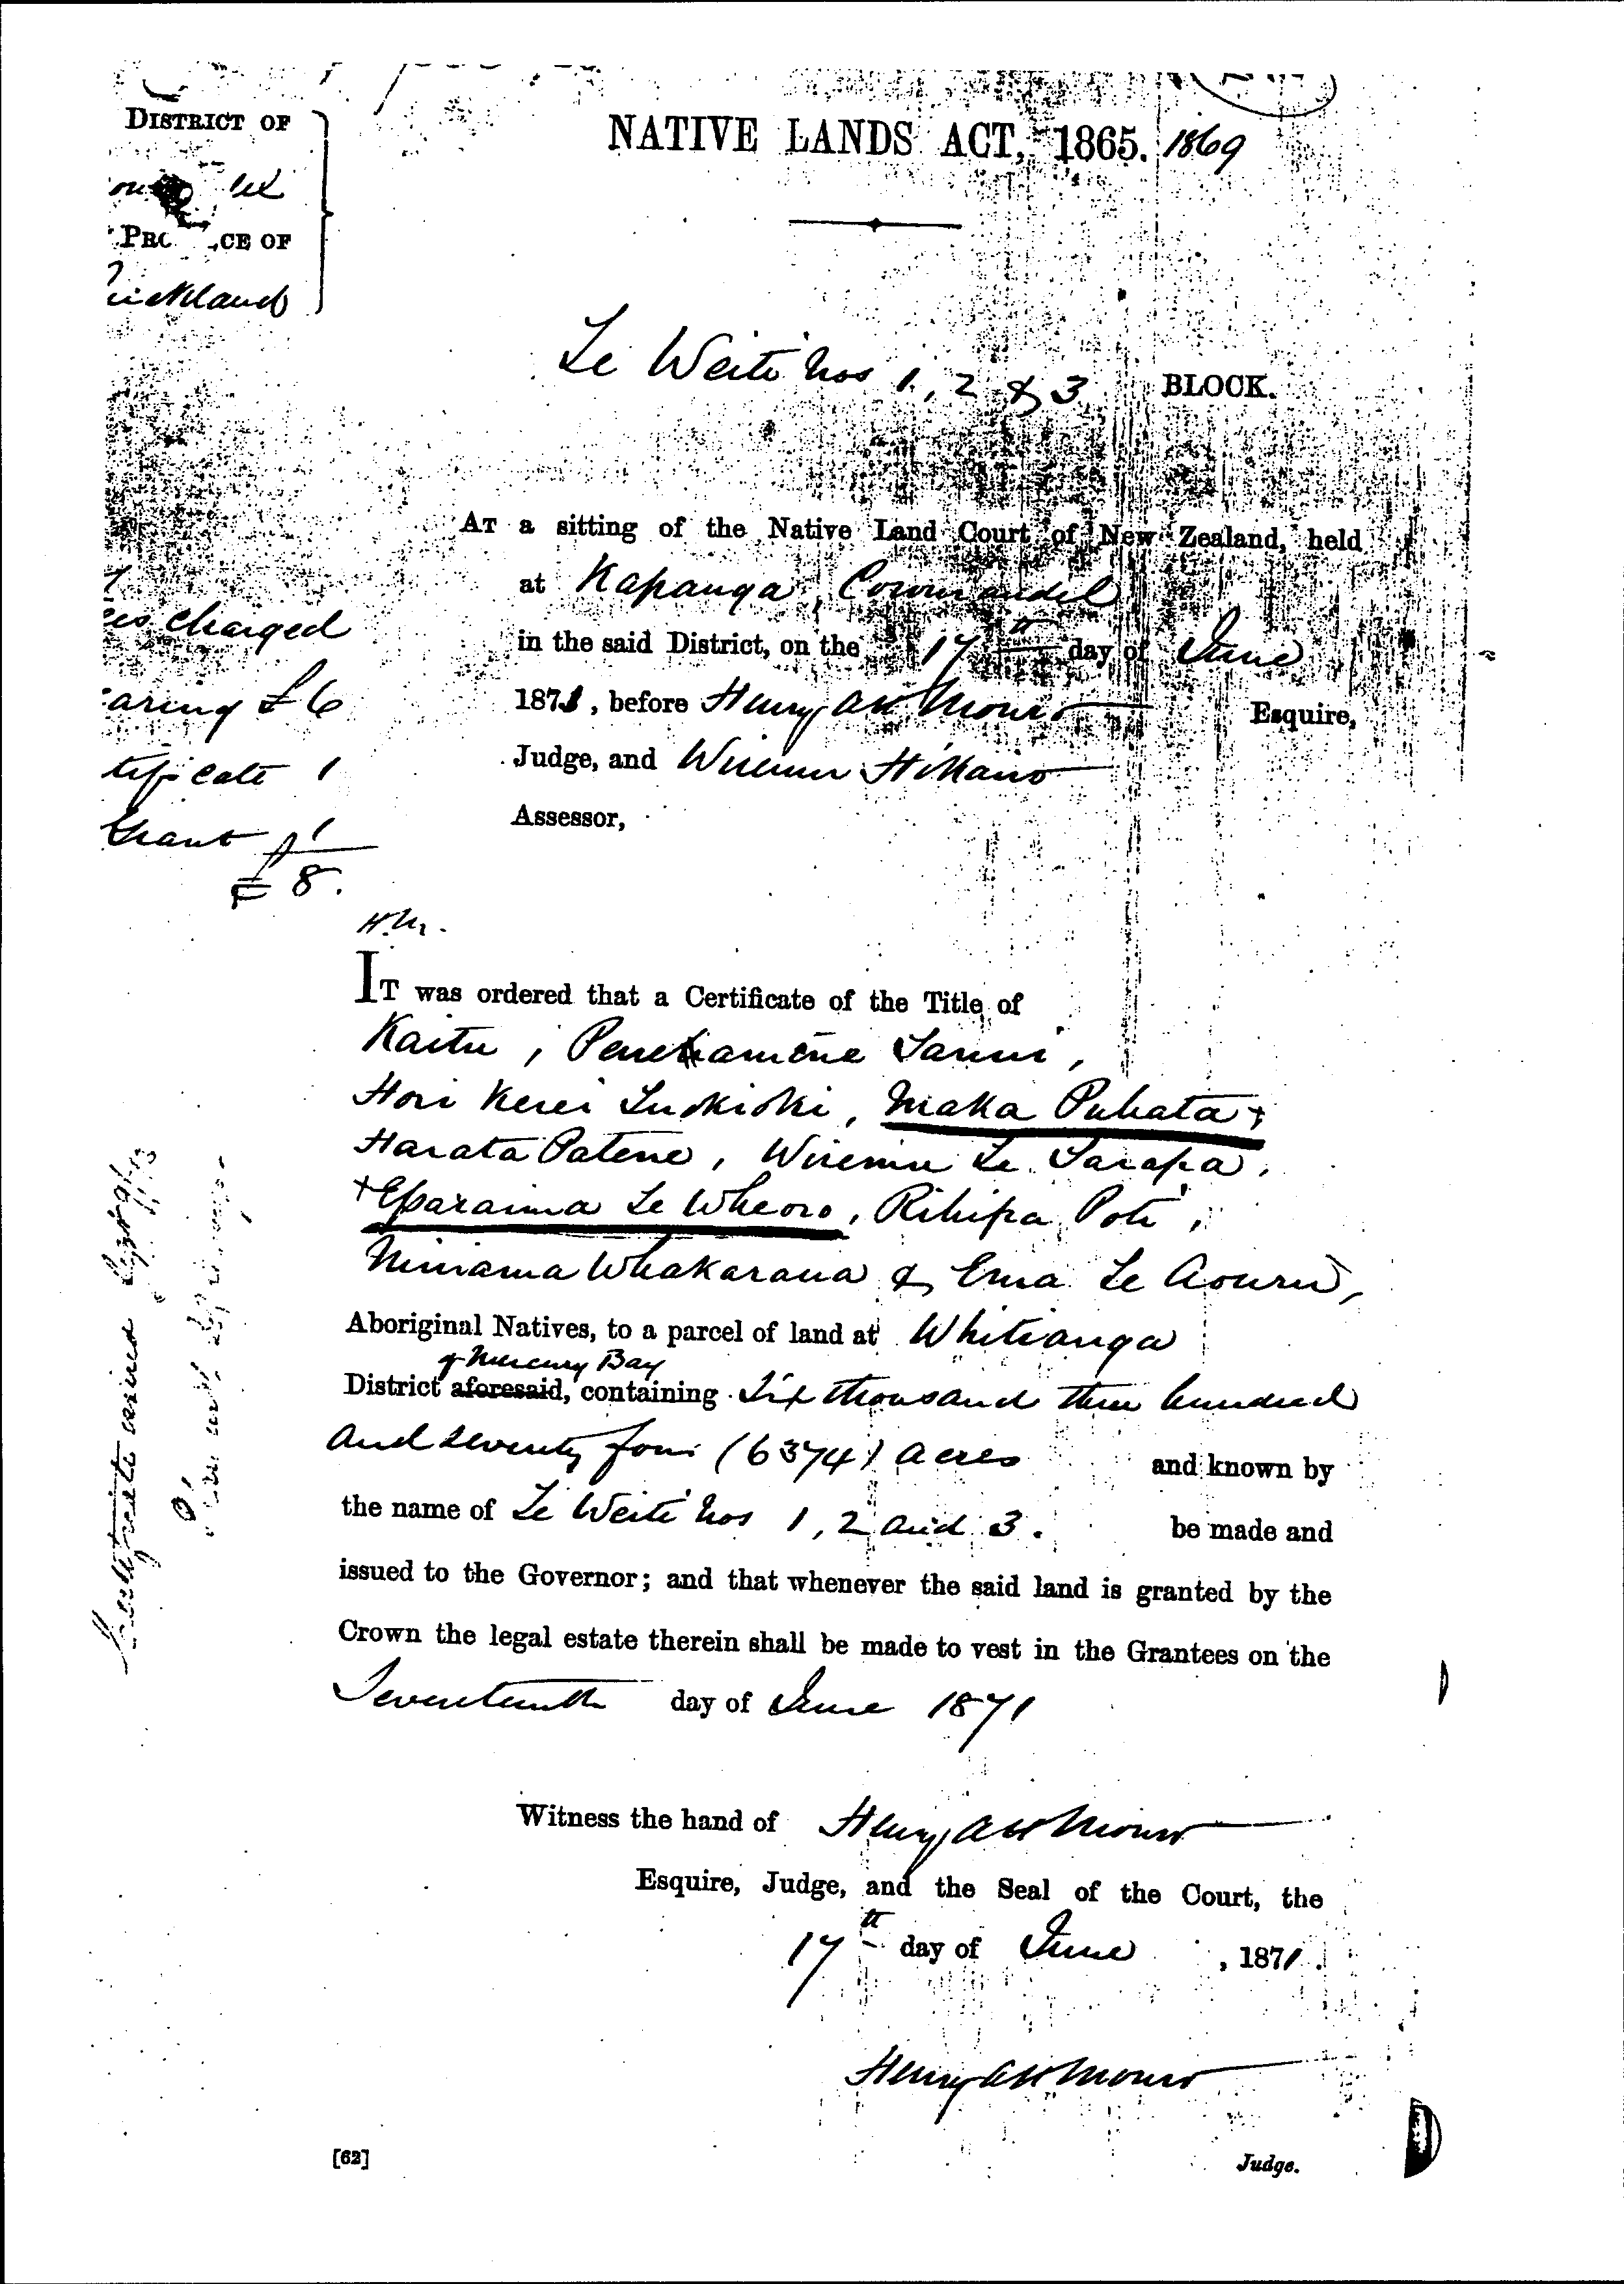 DISTRICT OF
PRO CE OF
uckland
NATIVE LANDS ACT, 1865. 1869
Te Weiti Nos 1, 2 & 3 BLOCK.
AT a sitting of the Native Land Court of New Zealand, held
at Kapanga, Coromandel
in the said District, on the 17th day of June
1871, before Henry AH Monro Esquire,
Judge, and Wiremu Hikairo
Assessor,
ees charged
aring £6
tificate 1
Grant 1
£ 8.
H.M.
IT was ordered that a Certificate of the Title of
Kaitu, Penehamene Tanui,
Hori Kerei Tuokioki, Maka Puhata +
Harata Patene, Wiremu Te Tarapa,
+ Eparaima Te Wheoro, Rihipa Poti,
Miriama Whakarana & Ema Te Aouru,
Aboriginal Natives, to a parcel of land at Whitianga
of Mercury Bay
District aforesaid, containing Six thousand three hundred
and seventy four (6374) acres and known by
the name of Te Weiti Nos 1, 2 and 3. be made and
issued to the Governor; and that whenever the said land is granted by the
Crown the legal estate therein shall be made to vest in the Grantees on the
Seventeenth day of June 1871
Witness the hand of Henry AH Monro
Esquire, Judge, and the Seal of the Court, the
17th day of June, 1871.
Henry AH Monro
[62] Judge.
Certificate issued